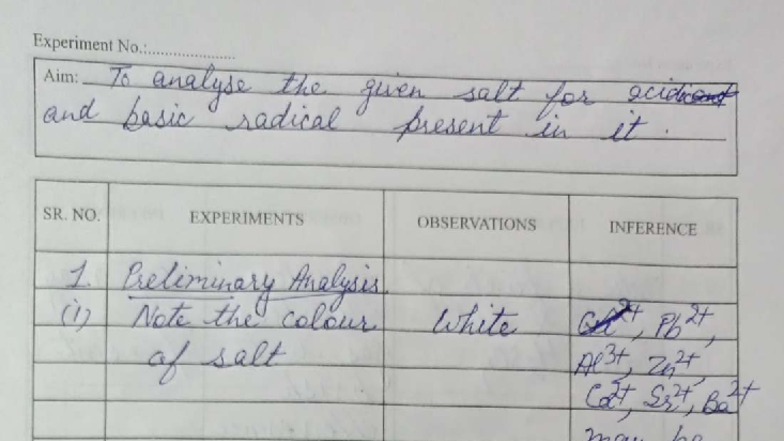 Experiment No.:
Aim: To analyse the given salt for acidic
and basic radical present in it.
SR. NO. EXPERIMENTS OBSERVATIONS INFERENCE
1. Preliminary Analysis
(i) Note the colour White Pb²⁺,
of salt Al³⁺, Zn²⁺,
Ca²⁺, Sr²⁺, Ba²⁺
may be